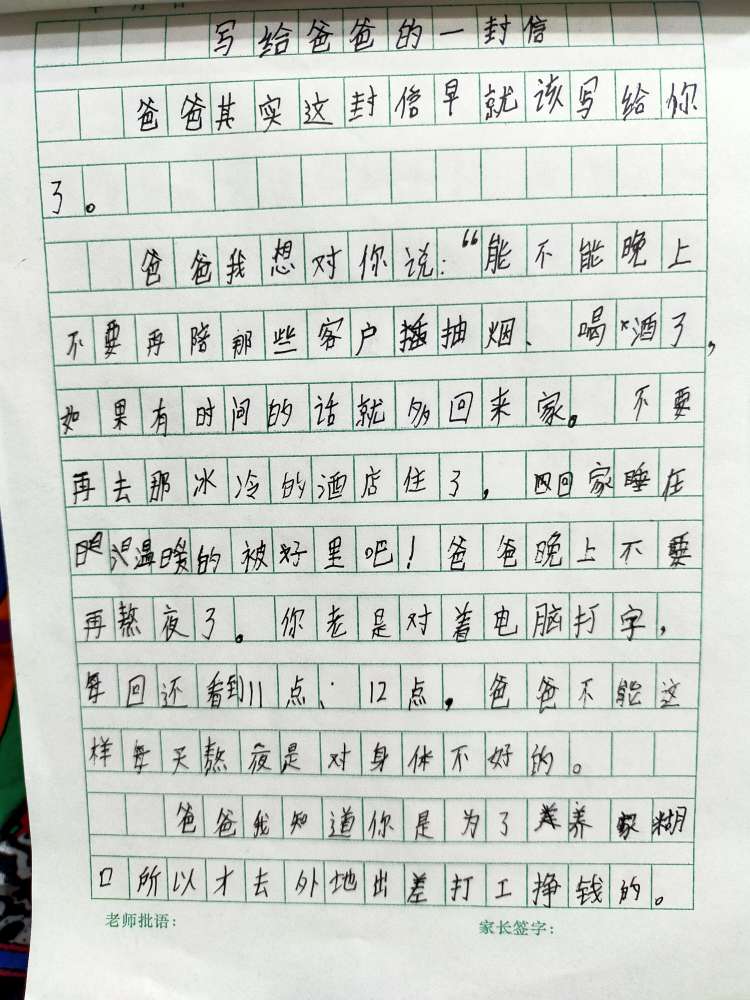 写给爸爸的一封信
爸爸其实这封信早就该写给你
了。
爸爸我想对你说:“能不能晚上
不要再陪那些客户抽烟、喝酒了,
如果有时间的话就多回来家。不要
再去那冰冷的酒店住了,回家睡在
温暖的被好里吧!爸爸晚上不要
再熬夜了。你老是对着电脑打字,
每回还看到11点、12点,爸爸不能这
样每天熬夜是对身体不好的。
爸爸我知道你是为了养家糊
口所以才去外地出差打工挣钱的。
老师批语:
家长签字: